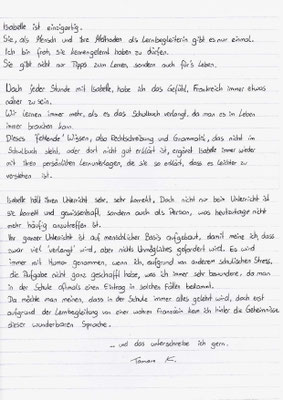 Isabelle ist einzigartig.
Sie, als Mensch und ihre Methoden als Lernbegleiterin gibt es nur einmal.
Ich bin froh, sie kennengelernt haben zu dürfen.
Sie gibt nicht nur Tipps zum Lernen, sondern auch für's Leben.
Nach jeder Stunde mit Isabelle, habe ich das Gefühl, Frankreich immer etwas
näher zu sein.
Wir lernen immer mehr, als es das Schulbuch verlangt, da man es im Leben
immer brauchen kann.
Dieses "fehlende" Wissen, also Rechtschreibung und Grammatik, das nicht im
Schulbuch steht, oder dort nicht gut erklärt ist, ergänzt Isabelle immer wieder
mit ihren persönlichen Lernunterlagen, die sie so erklärt, dass es leichter zu
verstehen ist.
Isabelle hält ihren Unterricht sehr, sehr korrekt. Doch nicht nur beim Unterricht ist
sie korrekt und gewissenhaft, sondern auch als Person, was heutzutage nicht
mehr häufig anzutreffen ist.
Ihr ganzer Unterricht ist auf menschlicher Basis aufgebaut, damit meine ich, dass
zwar viel "verlangt" wird, aber nichts Unmögliches gefordert wird. Es wird
immer mit Humor genommen, wenn ich, aufgrund von anderem schulischen Stress,
die Aufgabe nicht ganz geschafft habe, was ich immer sehr bewundere, da man
in der Schule oftmals einen Eintrag in solchen Fällen bekommt.
Da möchte man meinen, dass in der Schule immer alles gelehrt wird, doch erst
aufgrund der Lernbegleitung von einer wahren Französin kam ich hinter die Geheimnisse
dieser wunderbaren Sprache.
... und das unterschreibe ich gern.
Tamara K.